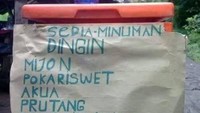 SEDIA-MINUMAN
DINGIN
MIJON
POKARISWET
AKUA
PRUTANG